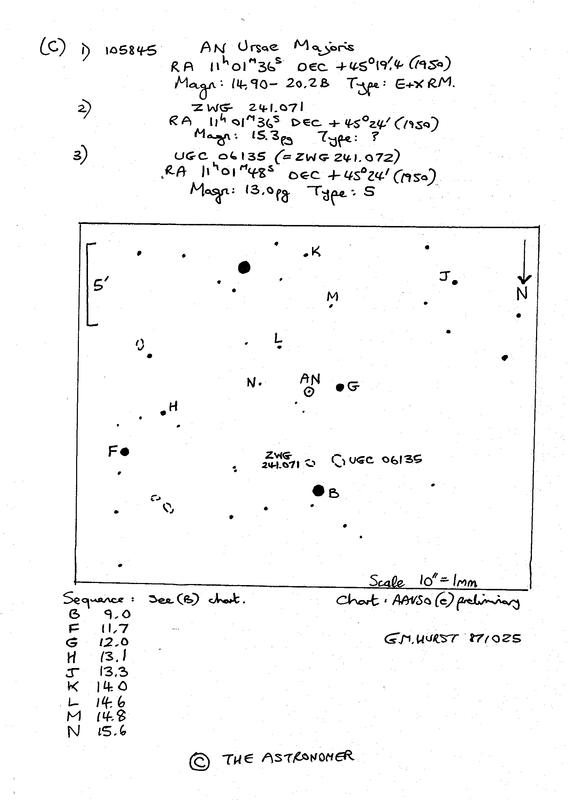 (C) 1) 105845 AN Ursae Majoris
RA 11h 01m 36s DEC +45°19!4 (1950)
Magn: 14.90 - 20.2B Type: E+XRM.
2) ZWG 241.071
RA 11h 01m 36s DEC +45°24' (1950)
Magn: 15.3pg Type: ?
3) UGC 06135 (= ZWG 241.072)
RA 11h 01m 48s DEC +45°24' (1950)
Magn: 13.0pg Type: S
K
5'
J
N
M
L
N
AN
G
H
F
ZWG
241.071
UGC 06135
B
Scale 10" = 1mm
Sequence: See (B) chart.
Chart: AAVSO (c) preliminary
B 9.0
F 11.7
G 12.0
H 13.1
J 13.3
K 14.0
L 14.6
M 14.8
N 15.6
G.M. HURST 871025
© THE ASTRONOMER